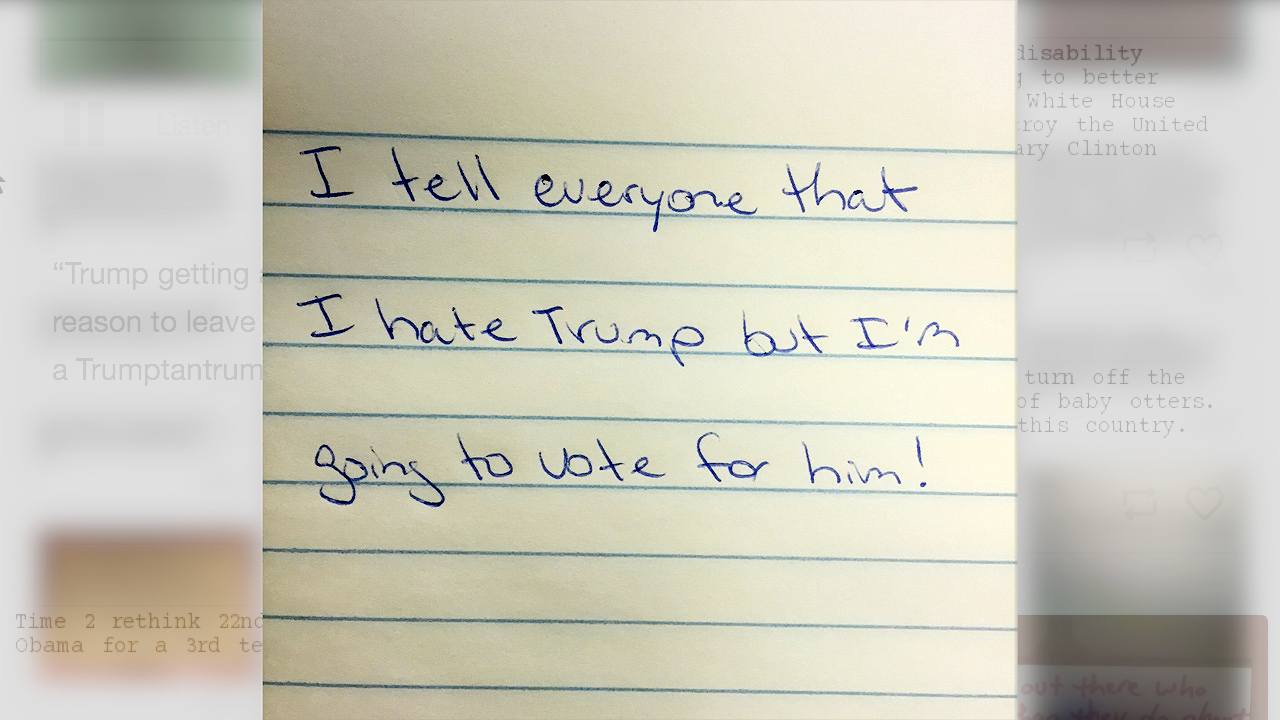 Listen
“Trump getting
reason to leave
a Trumptantrum
Time 2 rethink 22nd
Obama for a 3rd te
I tell everyone that
I hate Trump but I'm
going to vote for him!
disability
g to better
White House
roy the United
ary Clinton
turn off the
of baby otters.
this country.
out there who